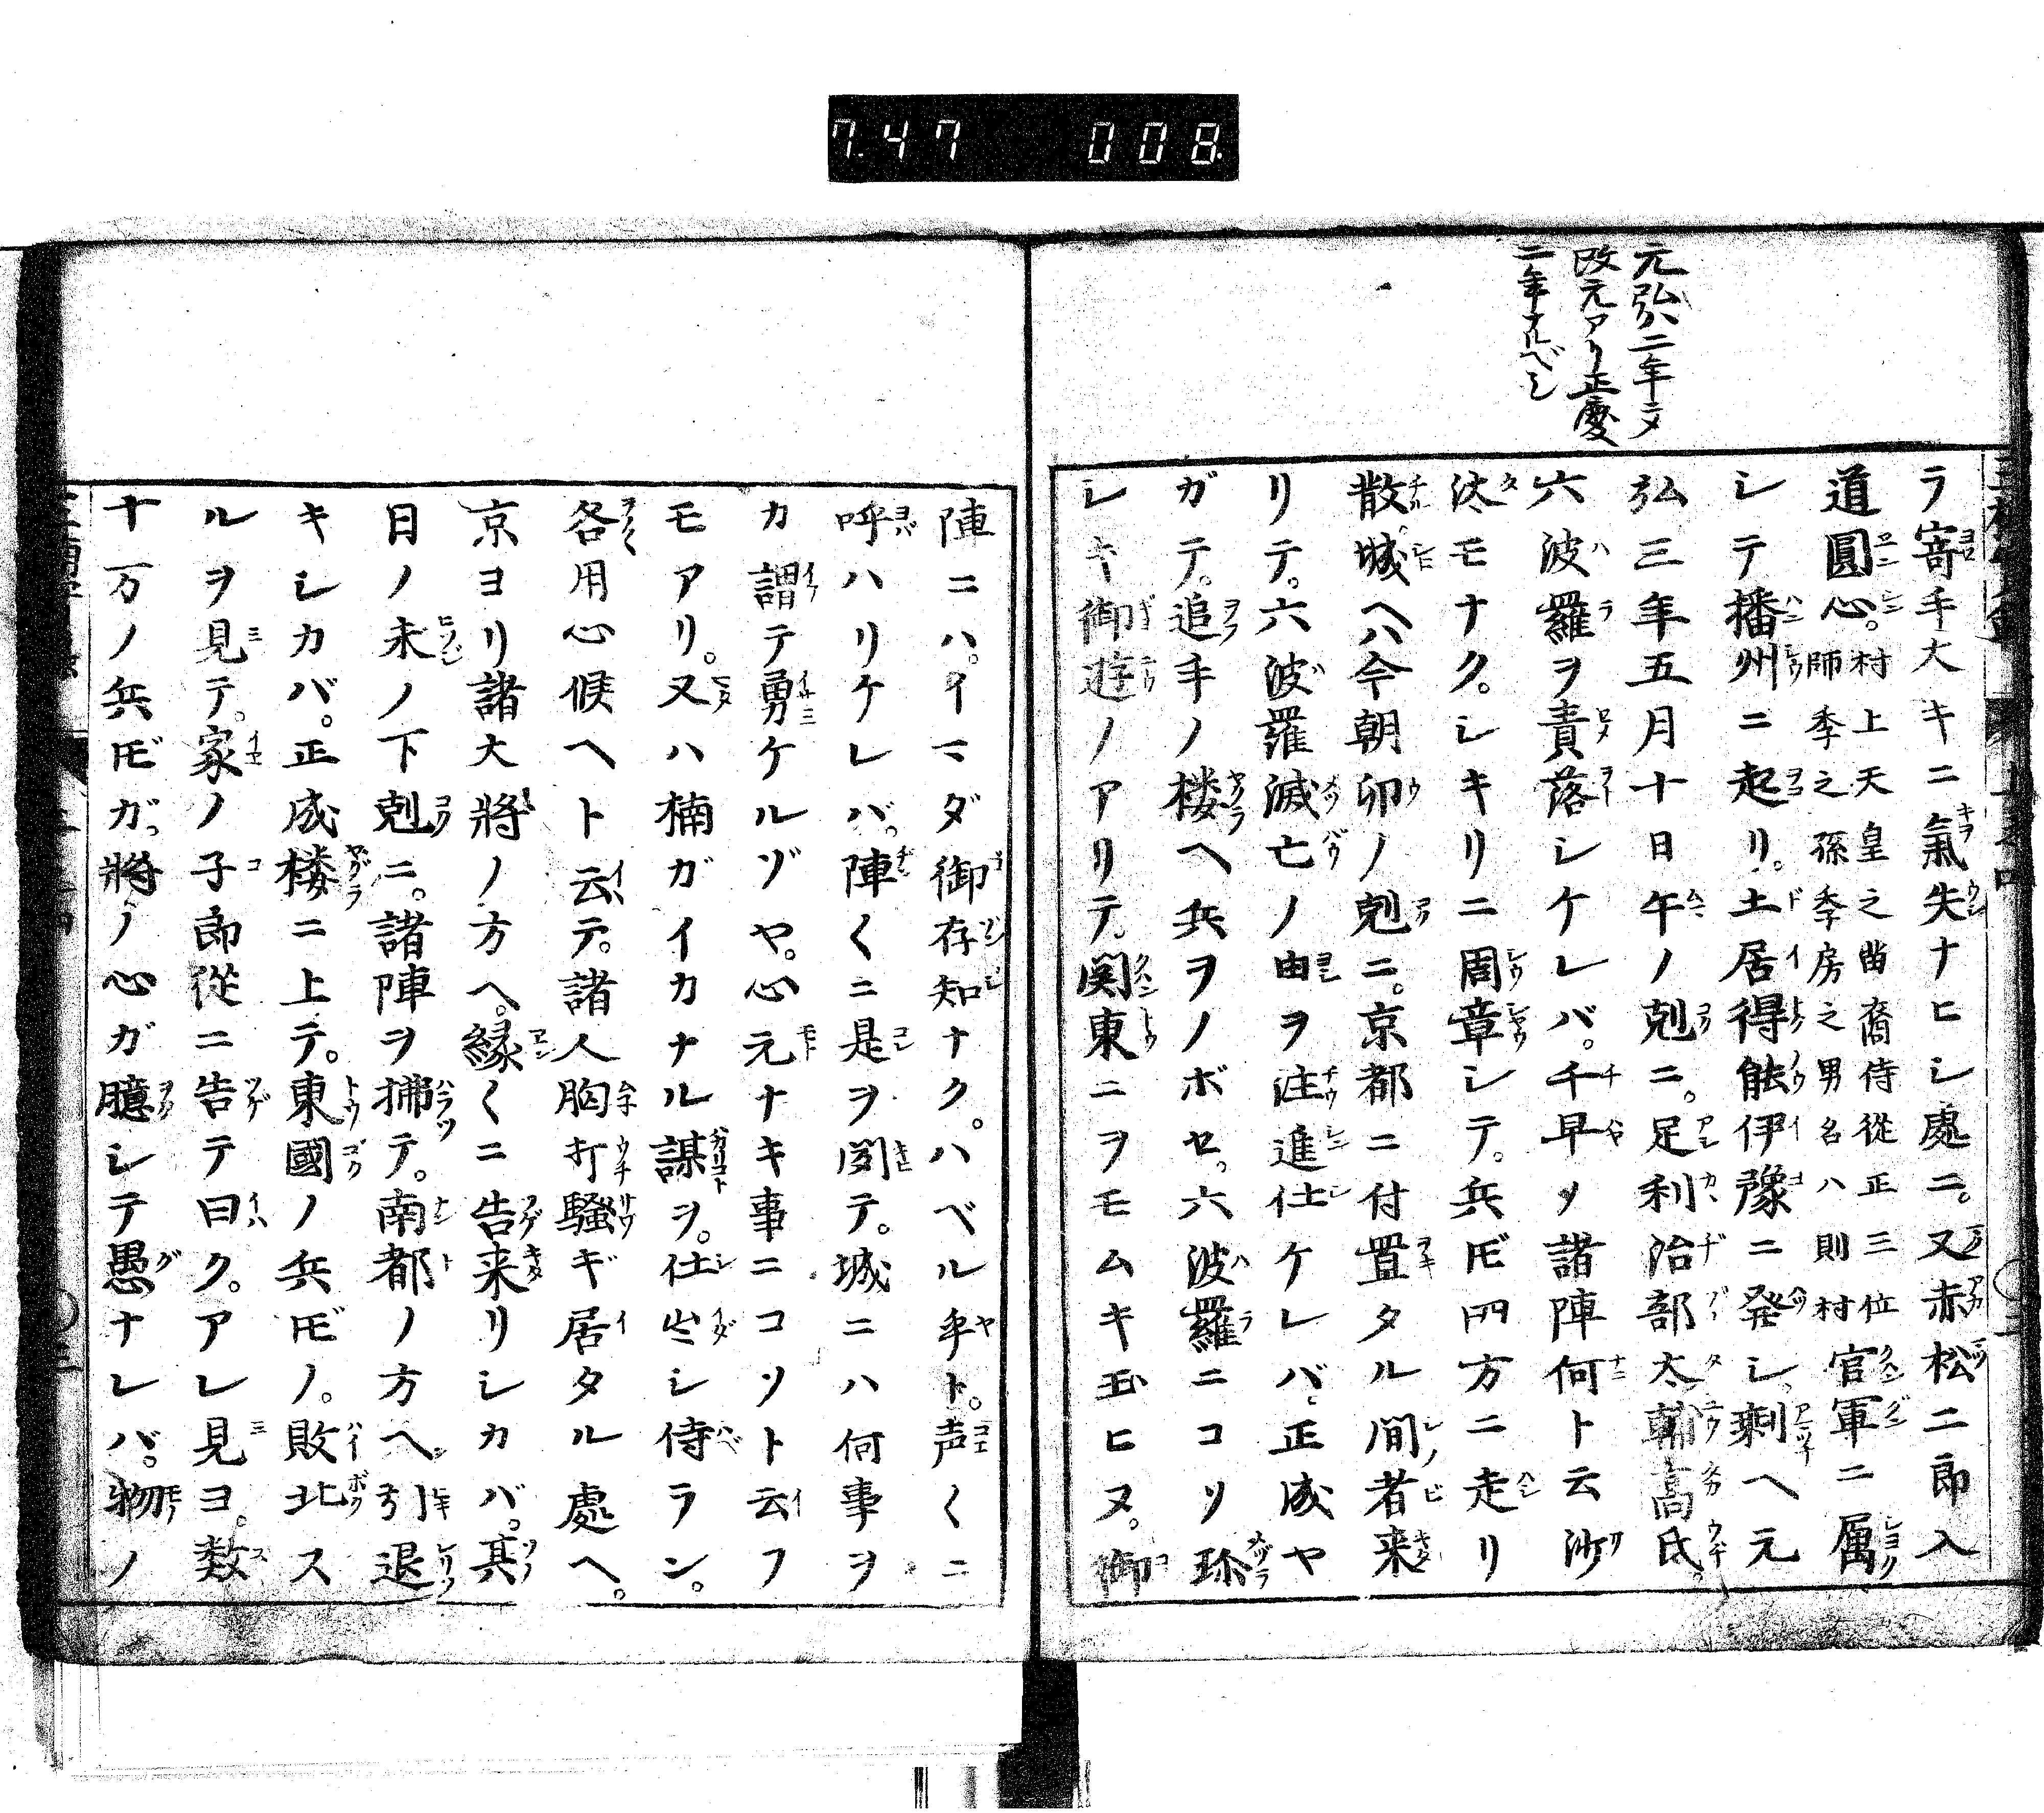 7.47 008.
元弘ハ二年ニメ
改元アリ正慶
二年ナルベシ
ラ寄手大キニ氣失ナヒシ處ニ。又赤松二郎入
道圓心。村上天皇之苗裔侍從正三位
師季之孫季房之男名ハ則村官軍ニ属
シテ播州ニ起リ。土居得能伊豫ニ発シ。剰ヘ元
弘三年五月十日午ノ剋ニ。足利治部太輔高氏
六波羅ヲ責落シケレバ。千早ノ諸陣何ト云沙
汰モナク。シキリニ周章シテ。兵𪜈四方ニ走リ
散。城ヘハ今朝卯ノ剋ニ。京都ニ付置タル間者来
リテ。六波羅滅亡ノ由ヲ注進仕ケレバ。正成ヤ
ガテ。追手ノ楼ヘ兵ヲノボセ。六波羅ニコソ珎
シキ御遊ノアリテ。関東ニヲモムキ玉ヒヌ。御
陣ニハ。イマダ御存知ナク。ハベル乎ト。声〱ニ
呼ハリケレバ。陣〱ニ是ヲ聞テ。城ニハ何事ヲ
カ謂テ勇ケルゾヤ。心元ナキ事ニコソト云フ
モアリ。又ハ楠ガイカナル謀ヲ。仕出シ侍ラン。
各用心候ヘト云テ。諸人胸打騒ギ居タル處ヘ。
京ヨリ諸大將ノ方ヘ。縁〱ニ告来リシカバ。其
日ノ未ノ下剋ニ。諸陣ヲ掃テ。南都ノ方ヘ引退
キシカバ。正成楼ニ上テ。東國ノ兵𪜈ノ。敗北ス
ルヲ見テ。家ノ子郎從ニ告テ曰ク。アレ見ヨ。数
十万ノ兵𪜈ガ。將ノ心ガ臆シテ愚ナレバ。物ノ